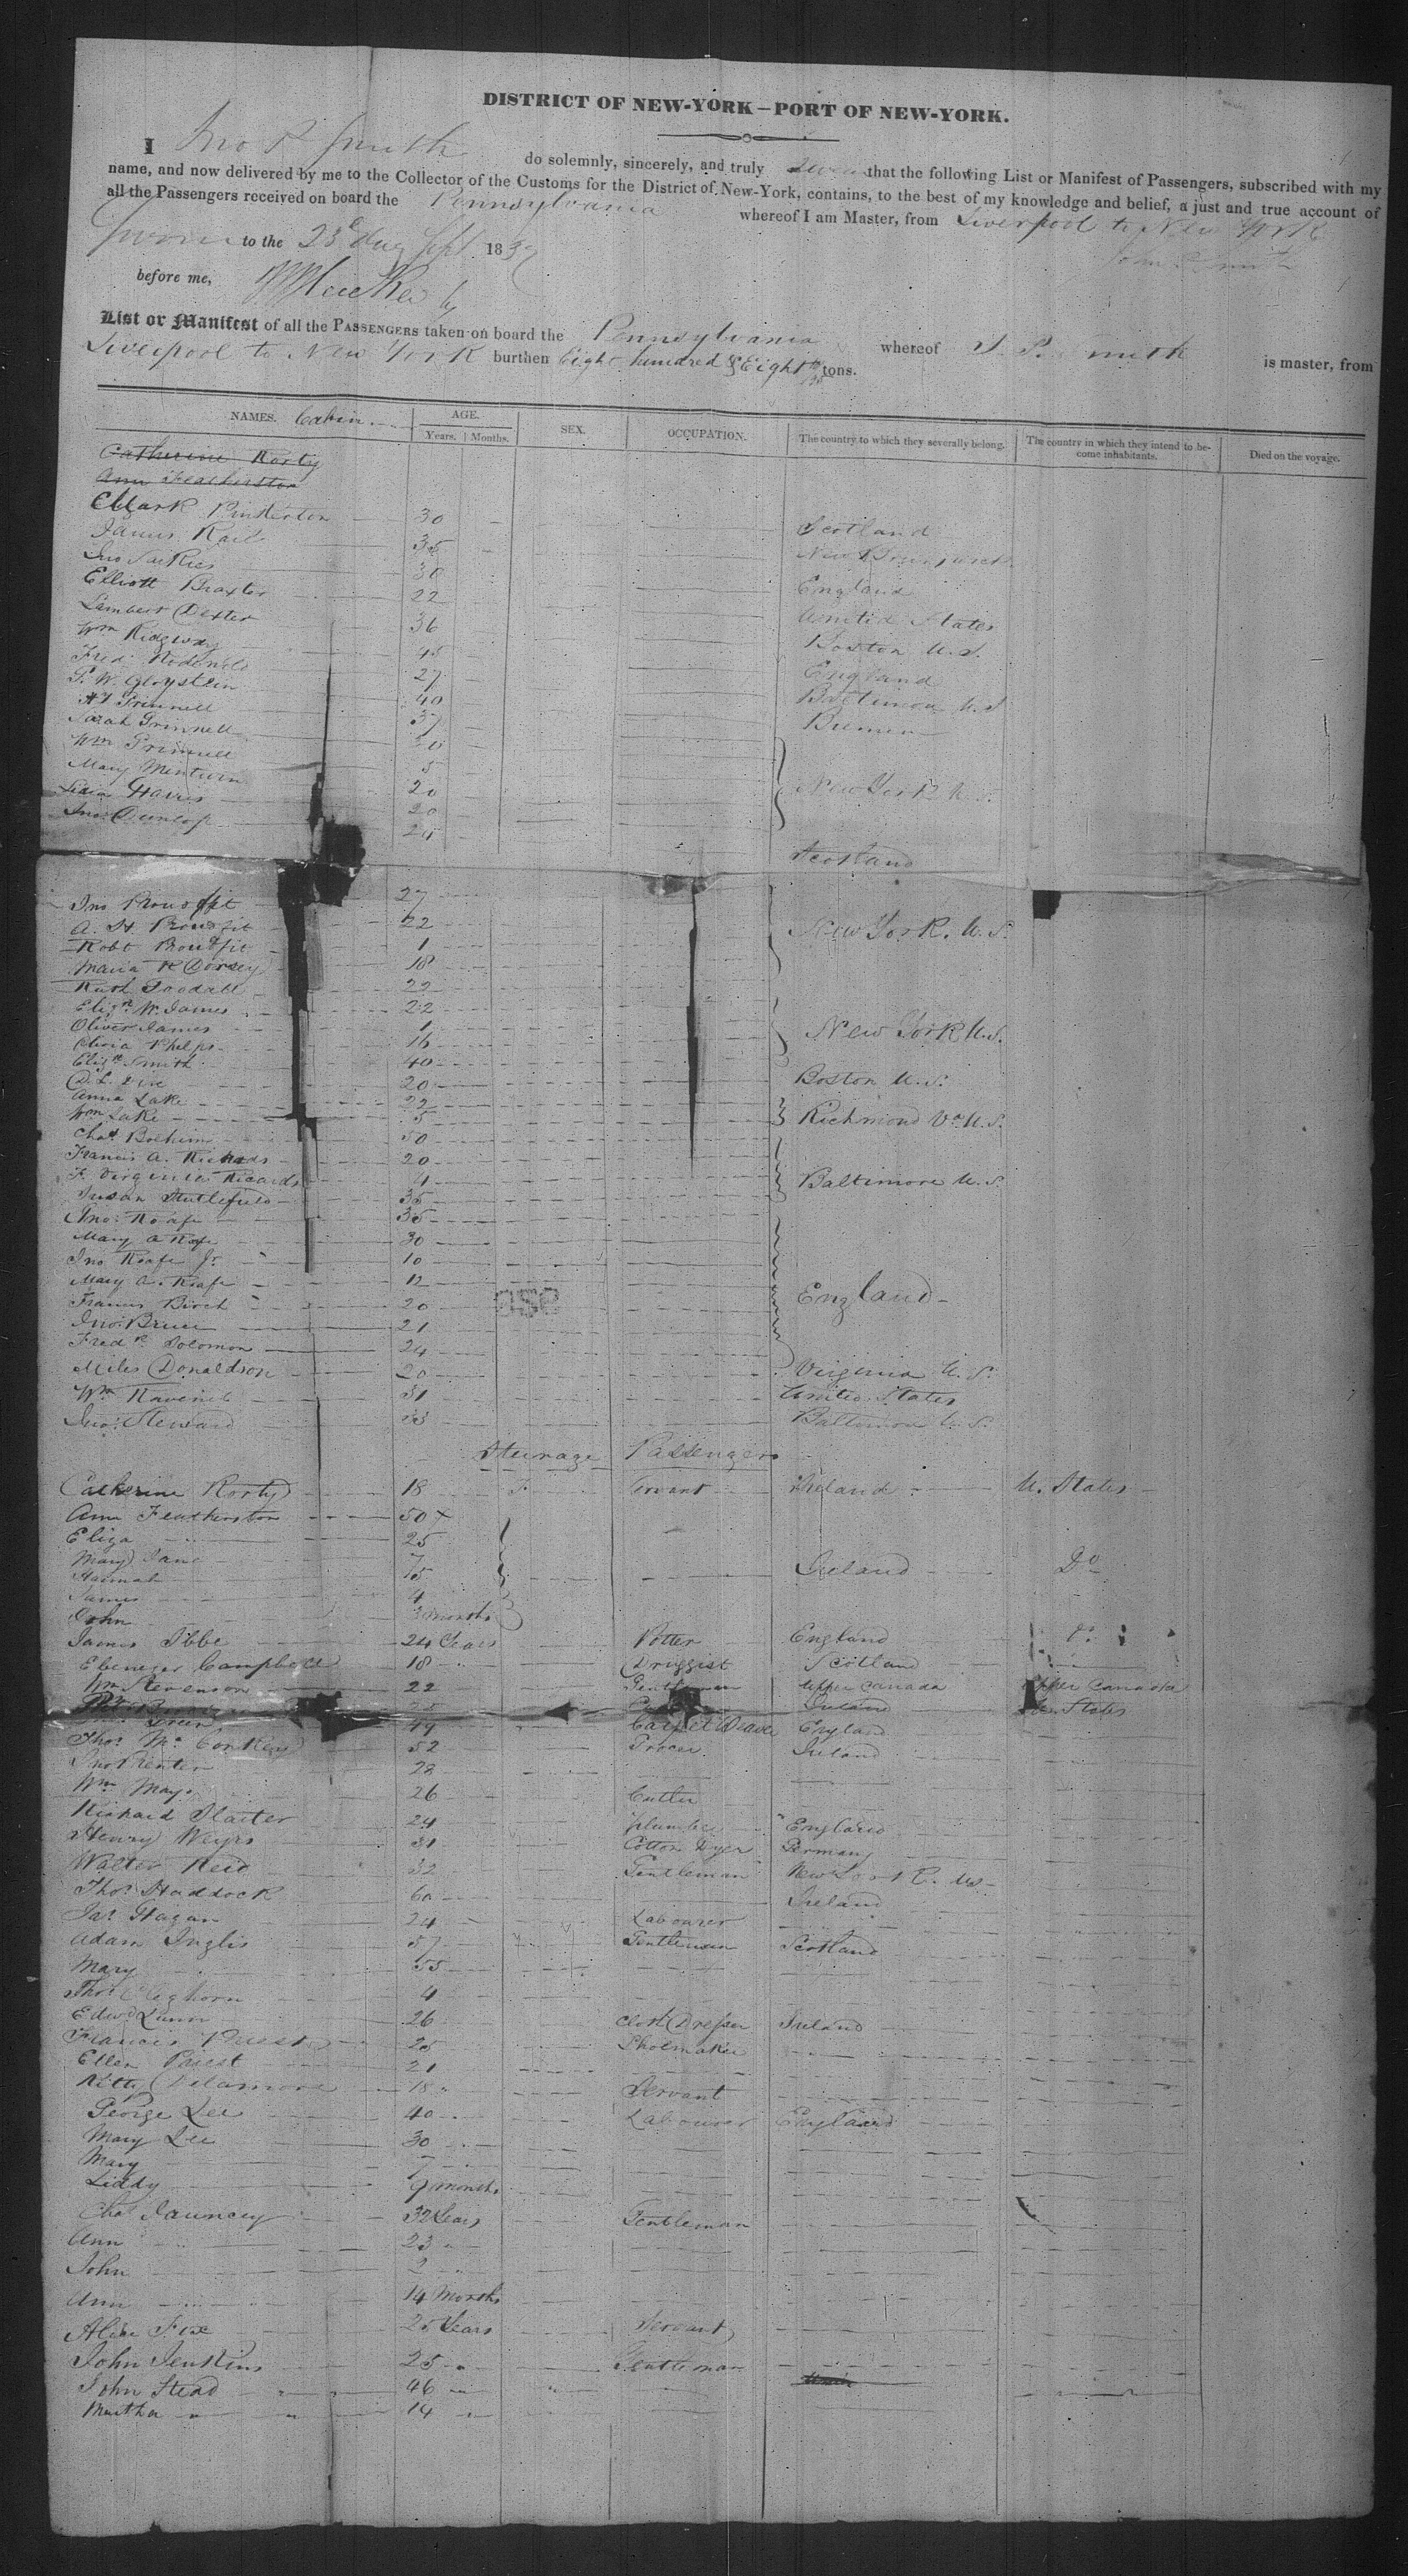 DISTRICT OF NEW-YORK—PORT OF NEW-YORK.
I Jno P Smith do solemnly, sincerely, and truly swear that the following List or Manifest of Passengers, subscribed with my
name, and now delivered by me to the Collector of the Customs for the District of New-York, contains, to the best of my knowledge and belief, a just and true account of
all the Passengers received on board the Pennsylvania whereof I am Master, from Liverpool to New York
Sworn to the 23 Sept 183
before me,
List or Manifest of all the PASSENGERS taken on board the Pennsylvania whereof J. P. Smith is master, from
Liverpool to New York burthen Eight hundred & Eight tons.
NAMES. Cabin. AGE. SEX. OCCUPATION. The country to which they severally belong. The country in which they intend to become inhabitants. Died on the voyage.
Years. Months.
Catherine Rorty
Ann Featherston
Clark Pinkerton 30 Scotland
James Rait 35 New Brunswick
Jno Sarkies 30 England
Elliott Braxter 22 United States
Lambert Dexter 36 Boston U.S.
Wm Ridgway 45 England
Fred. 27 Baltimore U.S
T. W. Gloystein 40 Bremen
H Grinnell 37
Sarah Grinnell 30
Wm Grinnell 5 New York U.S.
Mary Minturn 20
Harris 20
Jno. Dunlop 25 Scotland
Jno Proudfit 27
A. H. Proudfit 22 New York. U.S.
Robt Proudfit 1
Maria R Dorsey 18
Ruth Goodall 22
Eliz. W. James 22
Oliver James 1 New York U.S.
Olivia Phelps 16
Eliz. Smith 40
D. L. 20 Boston U.S.
Anna Lake 22
Wm Lake 5 Richmond Va U.S.
Chas 50
Francis A. Richards 20
F. Virginia Ricards 4 Baltimore U.S.
Susan Stutlefield 35
Jno. Roafe 35
Mary A Roafe 30
Jno Roafe Jr. 10
Mary A. Roafe 12
Francis Birch 20 England
Jno. Bruce 21
Fredk Solomon 24
Miles Donaldson 20 Virginia U.S.
Wm Ravenel 31 United States
Jno. Steward 33 Baltimore U.S.
Steerage Passengers
Catherine Rorty 18 F Servant Ireland U. States
Ann Featherston 50
Eliza 25
Mary Jane 7 Ireland Do
Hannah
James 4
John 3 months
James Ibbe 24 Years Potter England Do
Ebenezer Campbell 18 Druggist Scotland
Wm Stevenson 22 Gentleman Upper Canada Upper Canada
Ireland U. States
Green 44 Carpet Weaver England
Thos McConkey 52 Grocer. Ireland
Jno 28
Wm Mayo 26 Cutler
Richard Slaiter 24 Plumber England
Henry Weyrs 31 Cotton Dyer Germany
Walter Reid 32 Gentleman New York U.S.
Thos Haddock 60 Ireland
Jas Hagan 24 Labourer
Adam Inglis 57 Gentleman Scotland
Mary 55
Thos Cleghorn 4
Edwd Lunn 26 Cloth Dresser Ireland
Francis Priest 25 Shoemaker
Ellen Priest 21
Kitty Delamore 18 Servant
George Lee 40 Labourer England
Mary Lee 30
Mary
Liddy 9 months
Chas Jauncey 32 Years Gentleman
Ann 23
John 2
Ann 14 Months
Alice Fice 25 Years Servant
John Jenkins 25 Gentleman
John Stead 46
Martha 14